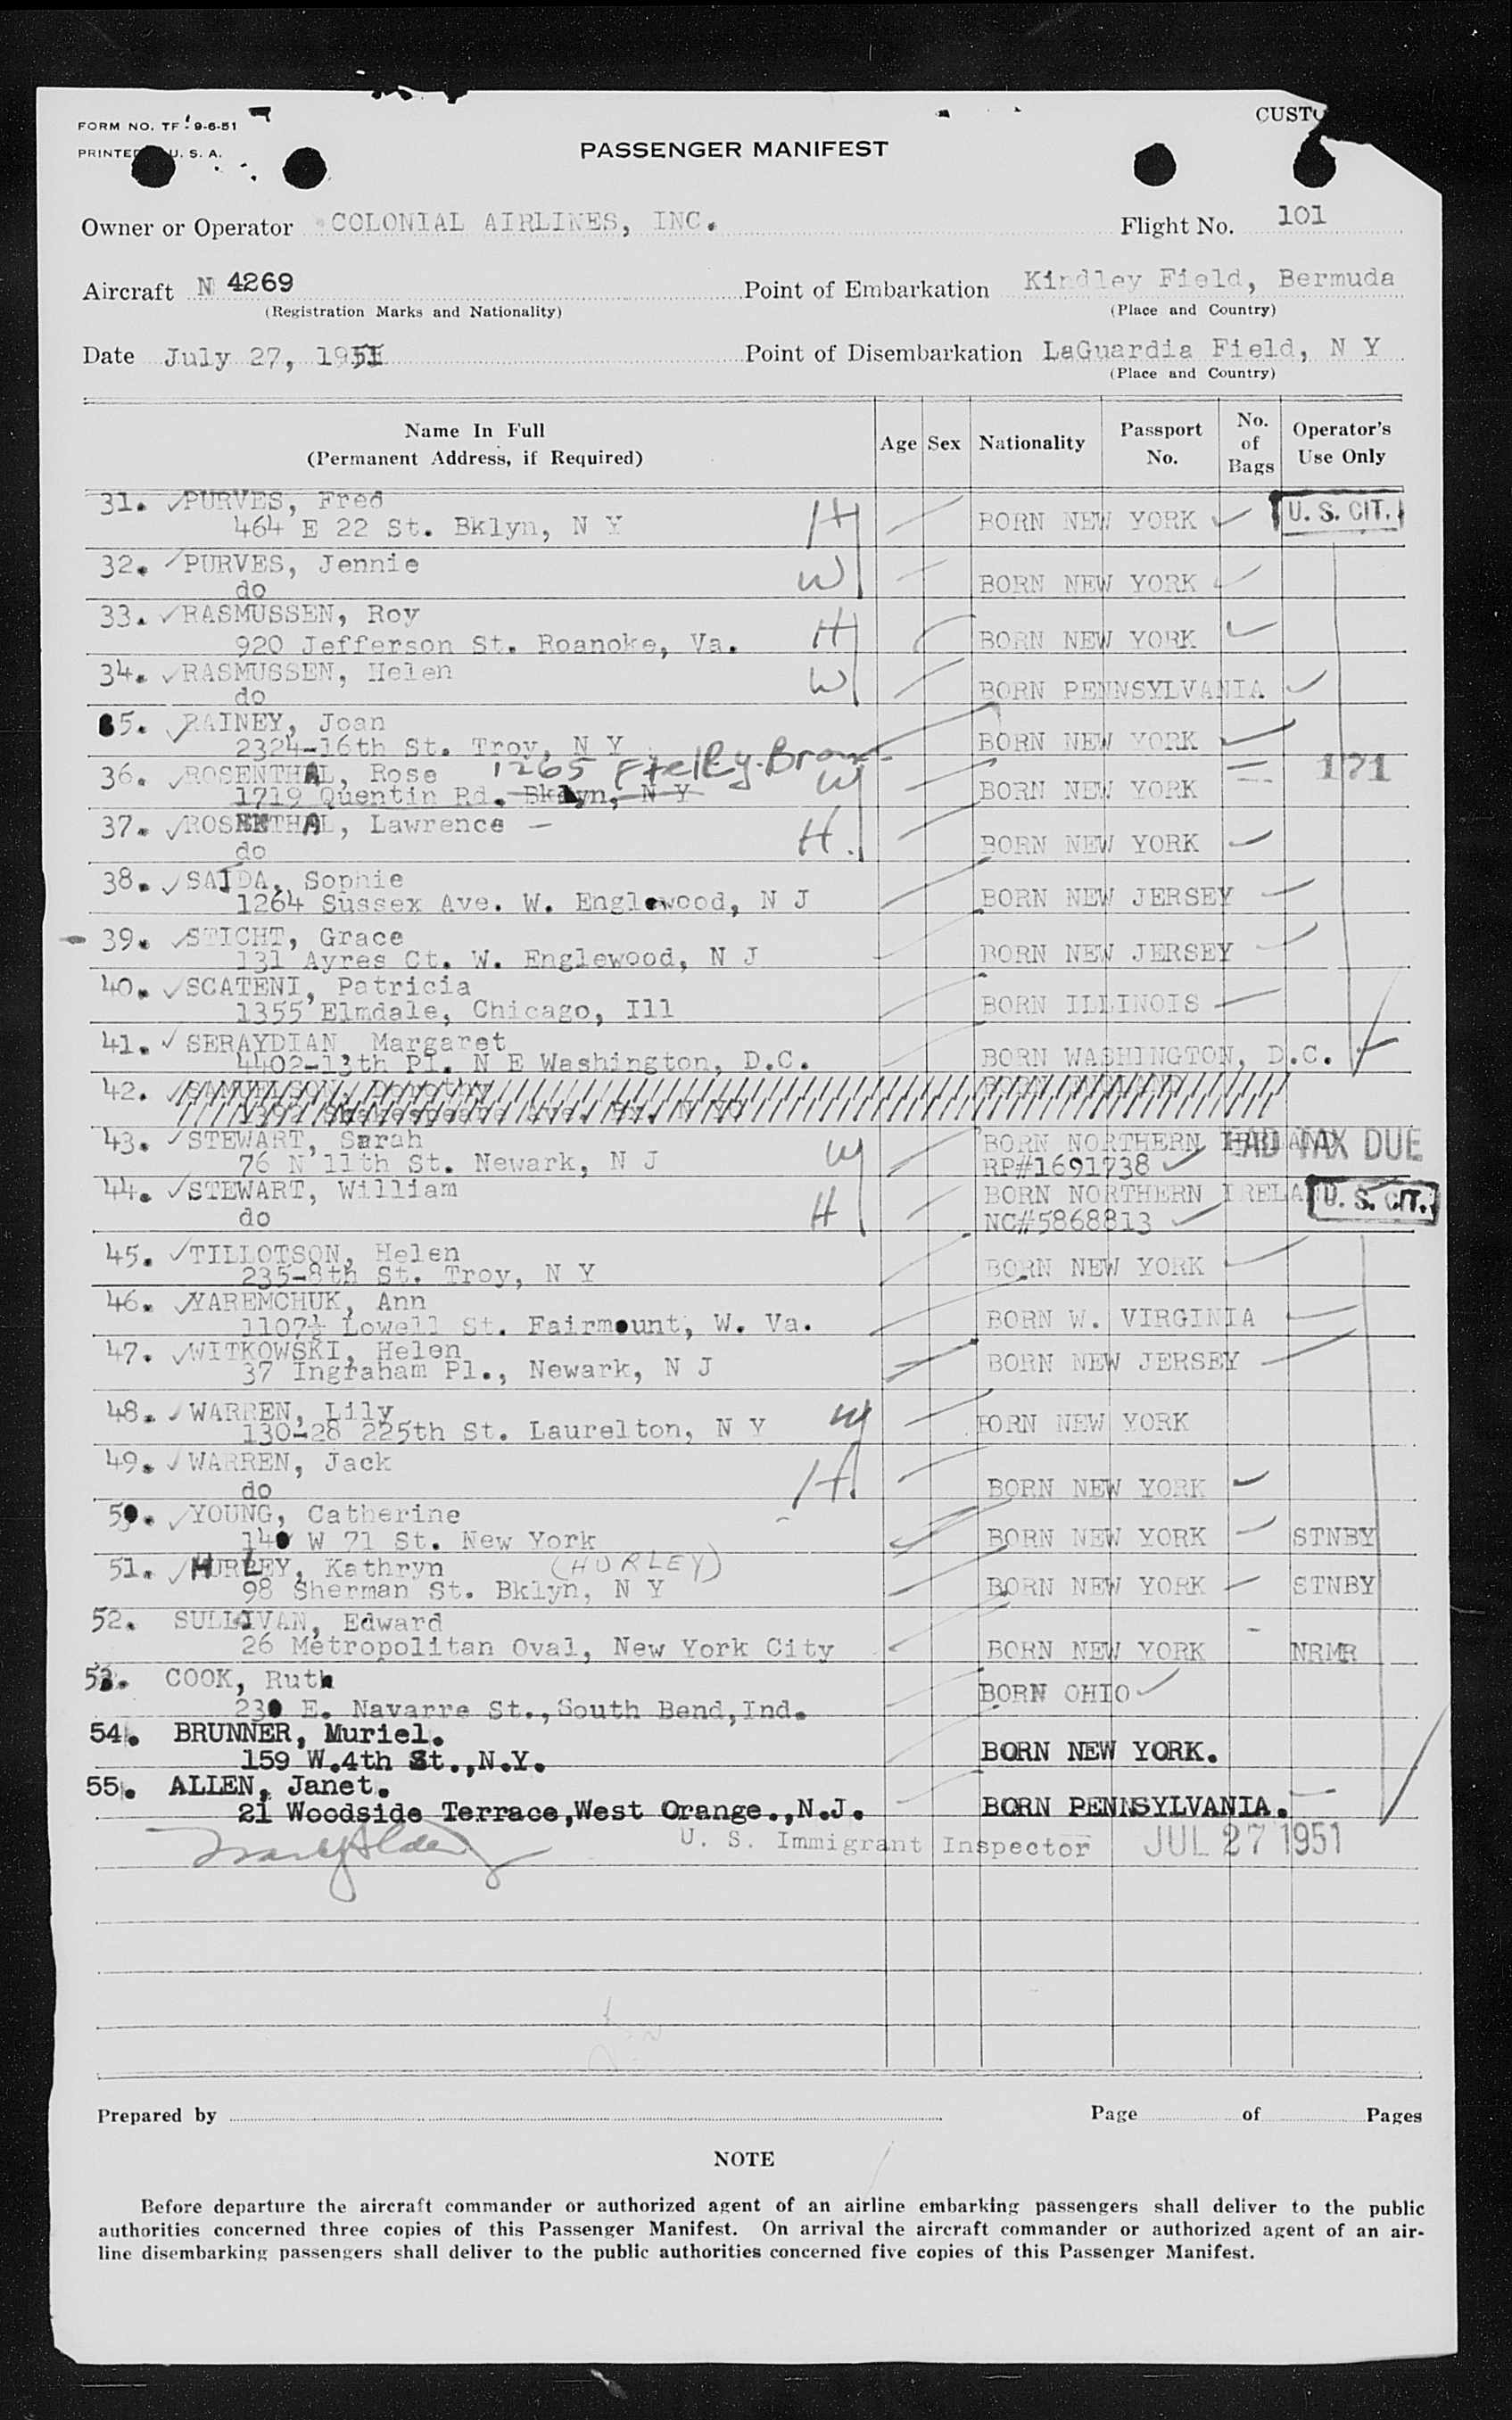 FORM NO. TF 9-6-51
CUSTO
PRINTED U. S. A.
PASSENGER MANIFEST
Owner or Operator COLONIAL AIRLINES, INC. Flight No. 101
Aircraft N 4269 Point of Embarkation Kindley Field, Bermuda
(Registration Marks and Nationality) (Place and Country)
Date July 27, 1951 Point of Disembarkation LaGuardia Field, N Y
(Place and Country)
Name In Full (Permanent Address, if Required) Age Sex Nationality Passport No. No. of Bags Operator's Use Only
31. PURVES, Fred
464 E 22 St. Bklyn, N Y H BORN NEW YORK U. S. CIT.
32. PURVES, Jennie
do W BORN NEW YORK
33. RASMUSSEN, Roy
920 Jefferson St. Roanoke, Va. H BORN NEW YORK
34. RASMUSSEN, Helen
do W BORN PENNSYLVANIA
35. RAINEY, Joan
2324-16th St. Troy, N Y BORN NEW YORK
36. ROSENTHAL, Rose 1265
1719 Quentin Rd. Bklyn, N Y W BORN NEW YORK 171
37. ROSENTHAL, Lawrence
do H. BORN NEW YORK
38. SAIDA, Sophie
1264 Sussex Ave. W. Englewood, N J BORN NEW JERSEY
39. STICHT, Grace
131 Ayres Ct. W. Englewood, N J BORN NEW JERSEY
40. SCATENI, Patricia
1355 Elmdale, Chicago, Ill BORN ILLINOIS
41. SERAYDIAN Margaret
4402-13th Pl. N E Washington, D.C. BORN WASHINGTON, D.C.
42.
43. STEWART, Sarah BORN NORTHERN IRELAND TAX DUE
76 N 11th St. Newark, N J W RP#1691738
44. STEWART, William BORN NORTHERN IRELAND U. S. CIT.
do H NC#5868813
45. TILLOTSON, Helen
235-8th St. Troy, N Y BORN NEW YORK
46. YAREMCHUK, Ann
1107½ Lowell St. Fairmount, W. Va. BORN W. VIRGINIA
47. WITKOWSKI, Helen
37 Ingraham Pl., Newark, N J BORN NEW JERSEY
48. WARREN, Lily
130-28 225th St. Laurelton, N Y W BORN NEW YORK
49. WARREN, Jack
do H. BORN NEW YORK
50. YOUNG, Catherine
140 W 71 St. New York BORN NEW YORK STNBY
51. HURLEY, Kathryn (HURLEY)
98 Sherman St. Bklyn, N Y BORN NEW YORK STNBY
52. SULLIVAN, Edward
26 Metropolitan Oval, New York City BORN NEW YORK NRMR
53. COOK, Ruth
230 E. Navarre St., South Bend, Ind. BORN OHIO
54. BRUNNER, Muriel.
159 W.4th St.,N.Y. BORN NEW YORK.
55. ALLEN, Janet.
21 Woodside Terrace,West Orange.,N.J. BORN PENNSYLVANIA.
U. S. Immigrant Inspector JUL 27 1951
Prepared by Page of Pages
NOTE
Before departure the aircraft commander or authorized agent of an airline embarking passengers shall deliver to the public
authorities concerned three copies of this Passenger Manifest. On arrival the aircraft commander or authorized agent of an air-
line disembarking passengers shall deliver to the public authorities concerned five copies of this Passenger Manifest.